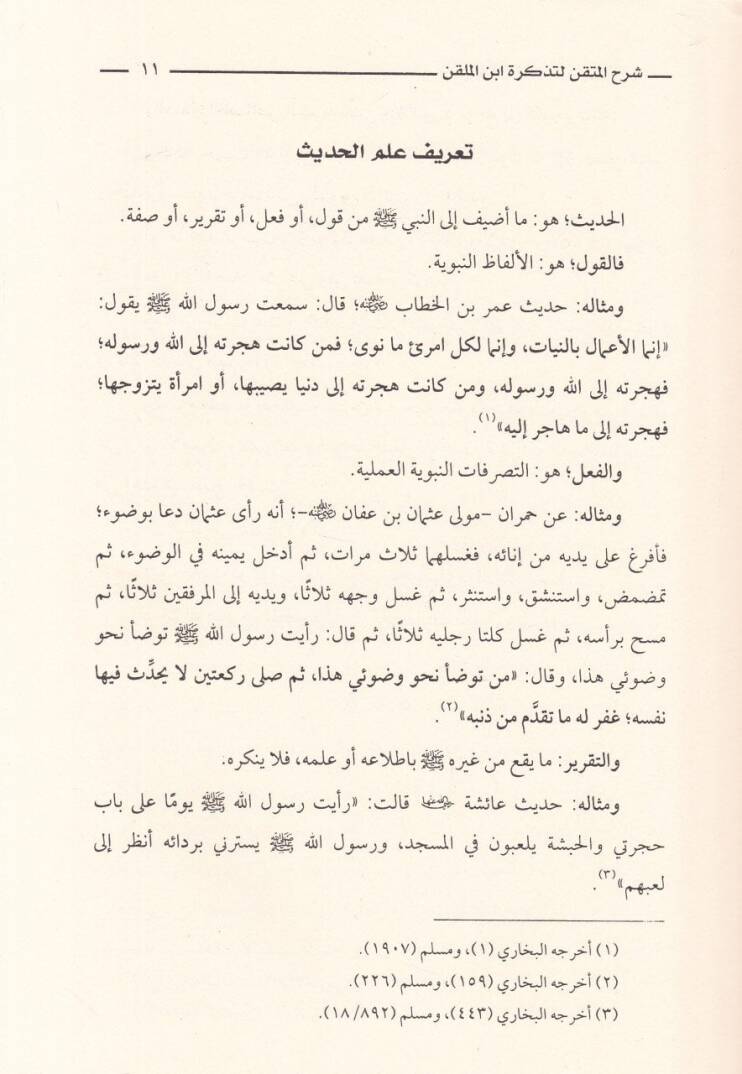 شرح المتقن لتذكرة ابن الملقن ١١
تعريف علم الحديث
الحديث؛ هو: ما أضيف إلى النبي ﷺ من قول، أو فعل، أو تقرير، أو صفة.
فالقول؛ هو: الألفاظ النبوية.
ومثاله: حديث عمر بن الخطاب رضي الله عنه؛ قال: سمعت رسول الله ﷺ يقول:
«إنما الأعمال بالنيات، وإنما لكل امرئ ما نوى؛ فمن كانت هجرته إلى الله ورسوله؛
فهجرته إلى الله ورسوله، ومن كانت هجرته إلى دنيا يصيبها، أو امرأة يتزوجها؛
فهجرته إلى ما هاجر إليه»(١).
والفعل؛ هو: التصرفات النبوية العملية.
ومثاله: عن حمران -مولى عثمان بن عفان رضي الله عنه-؛ أنه رأى عثمان دعا بوضوء؛
فأفرغ على يديه من إنائه، فغسلهما ثلاث مرات، ثم أدخل يمينه في الوضوء، ثم
تمضمض، واستنشق، واستنثر، ثم غسل وجهه ثلاثًا، ويديه إلى المرفقين ثلاثًا، ثم
مسح برأسه، ثم غسل كلتا رجليه ثلاثًا، ثم قال: رأيت رسول الله ﷺ توضأ نحو
وضوئي هذا، وقال: «من توضأ نحو وضوئي هذا، ثم صلى ركعتين لا يحدِّث فيها
نفسه؛ غفر له ما تقدَّم من ذنبه»(٢).
والتقرير: ما يقع من غيره ﷺ باطلاعه أو علمه، فلا ينكره.
ومثاله: حديث عائشة رضي الله عنها قالت: «رأيت رسول الله ﷺ يومًا على باب
حجرتي والحبشة يلعبون في المسجد، ورسول الله ﷺ يسترني بردائه أنظر إلى
لعبهم»(٣).
(١) أخرجه البخاري (١)، ومسلم (١٩٠٧).
(٢) أخرجه البخاري (١٥٩)، ومسلم (٢٢٦).
(٣) أخرجه البخاري (٤٤٣)، ومسلم (١٨/٨٩٢).